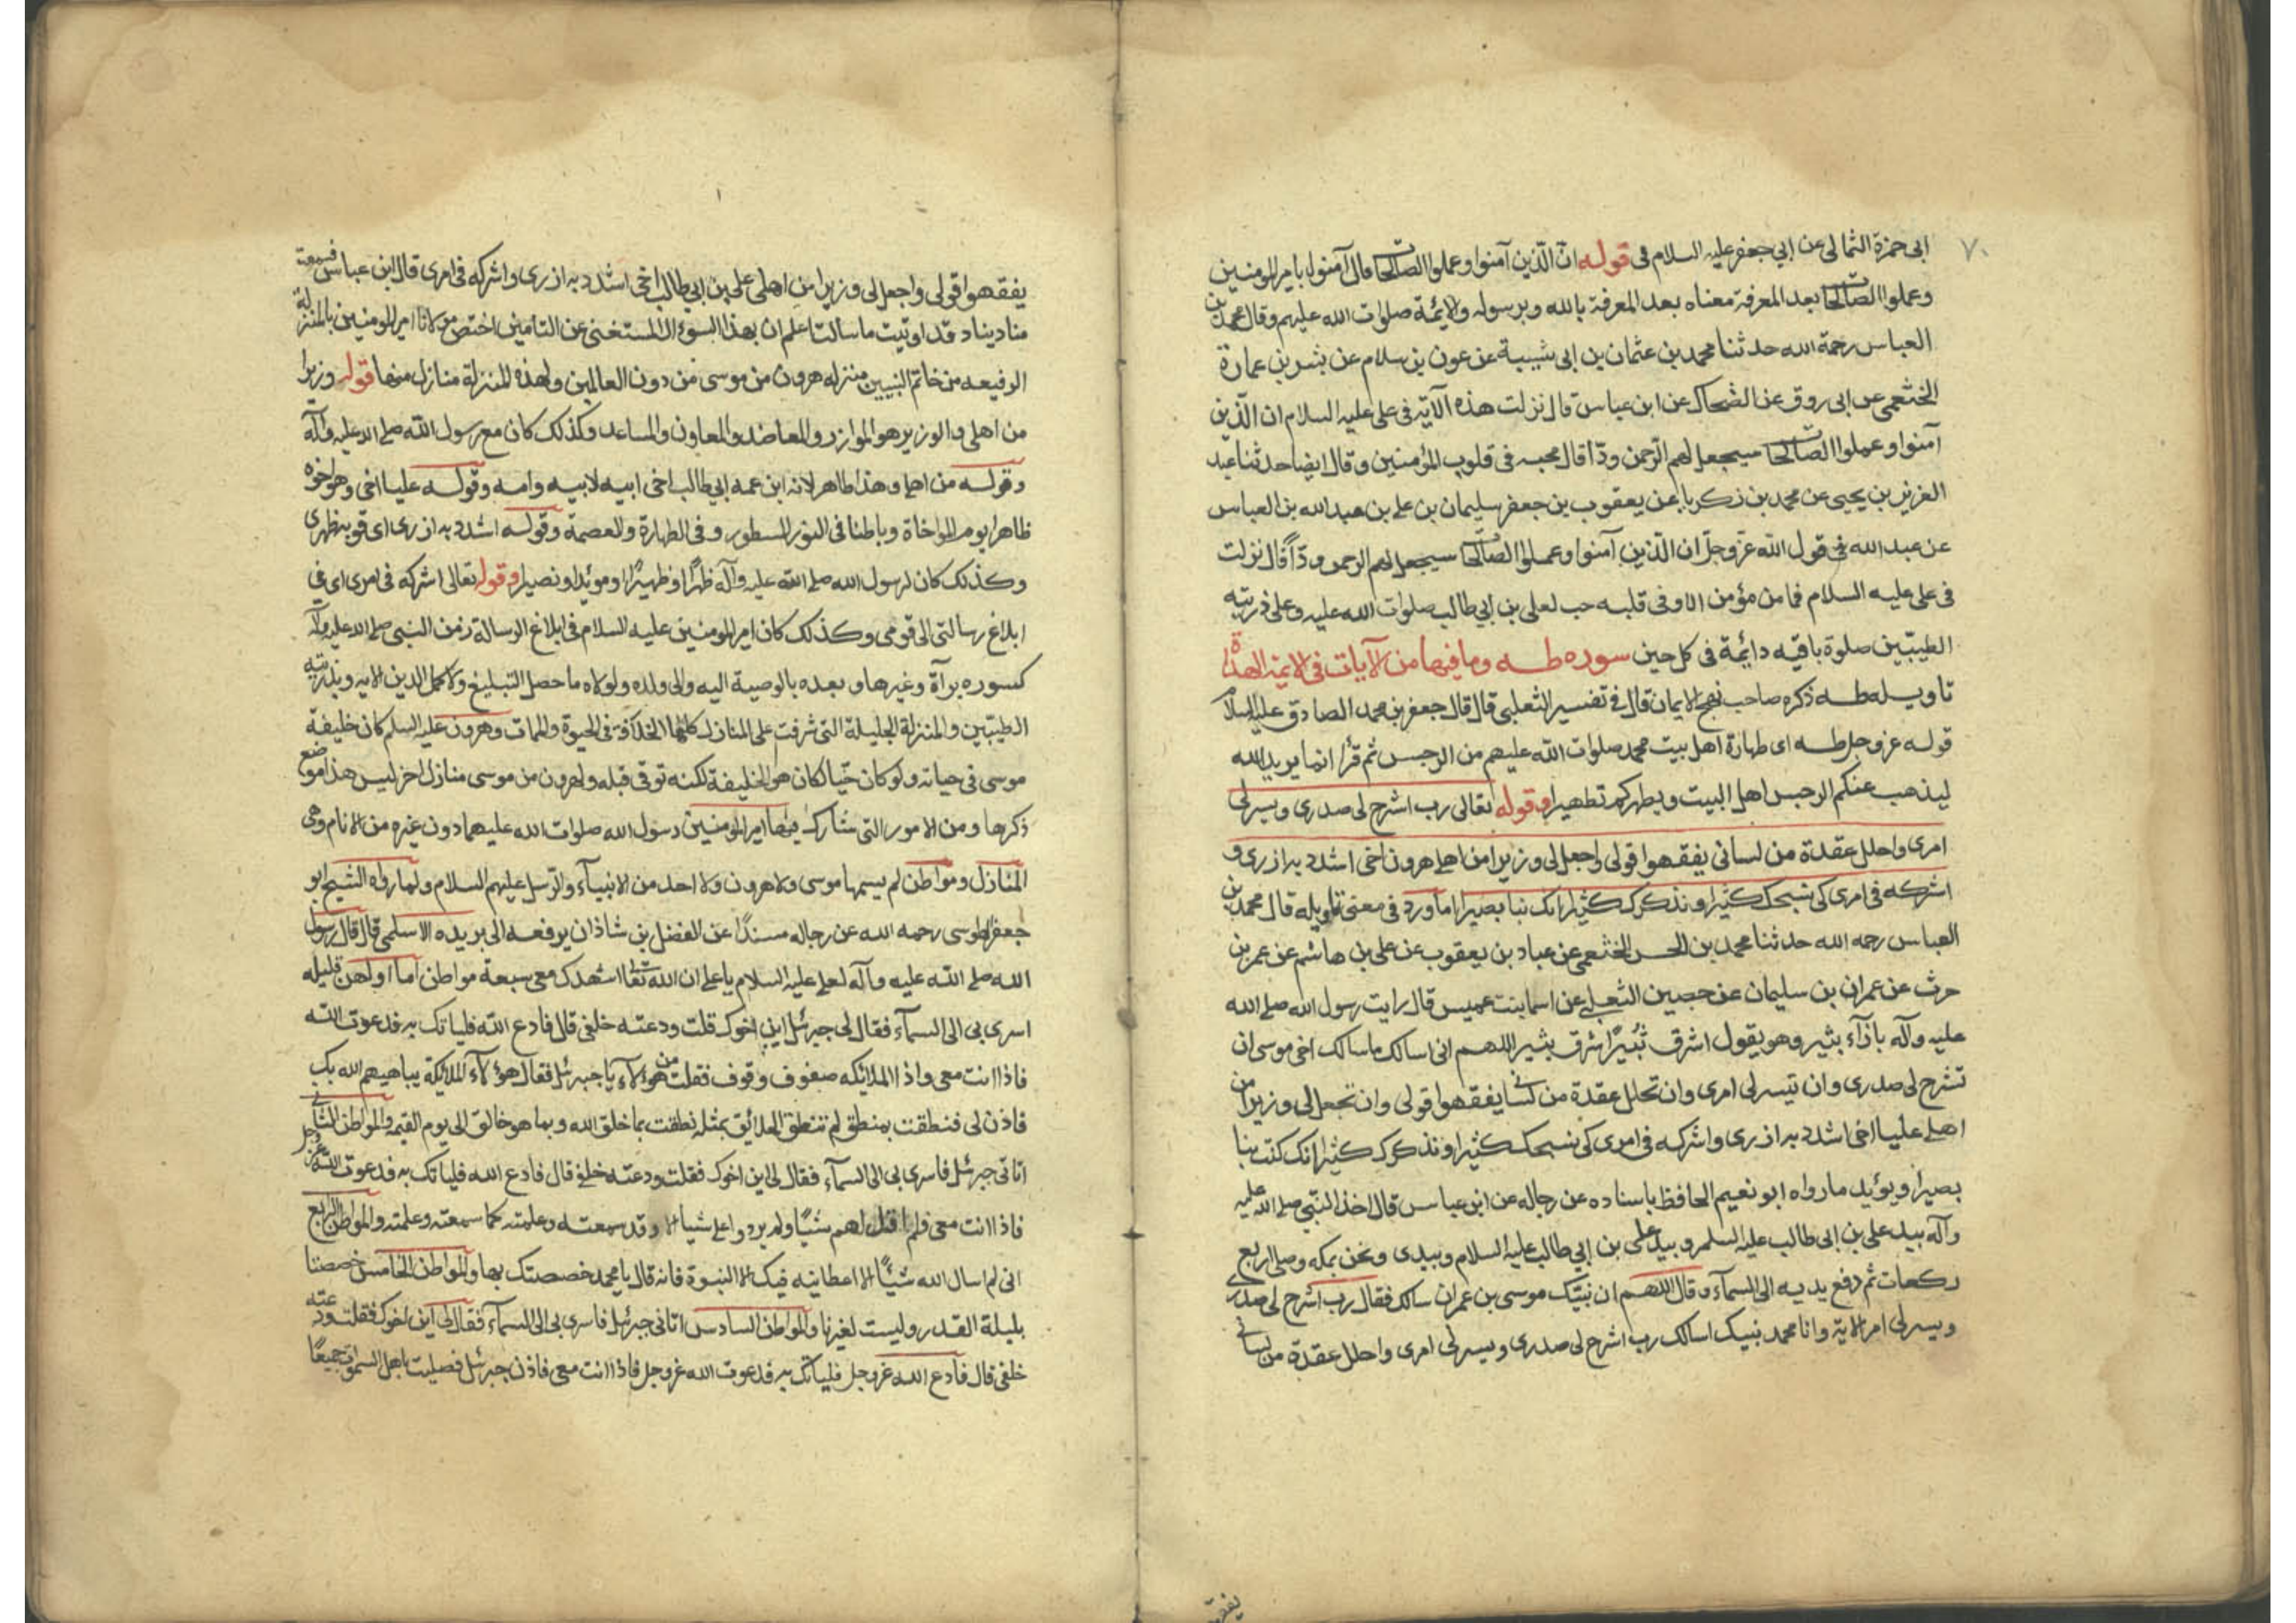 ٧٠
ابى حمزة الثمالى عن ابي جعفر عليه السلام فى قوله ان الّذين آمنوا وعملوا الصالحات قال آمنوا بامير المومنين
وعملوا الصالحات بعد المعرفة معناه بعد المعرفة بالله وبرسوله والايمة صلوات الله عليهم وقال محمد بن
العباس رحمة الله حدثنا محمد بن عثمان بن ابى شيبة عن عون بن سلام عن بشر بن عمارة
الخثعمى عن ابى روق عن الضحاك عن ابن عباس قال نزلت هذه الآية فى على عليه السلام ان الّذين
آمنوا وعملوا الصالحات سيجعل لهم الرحمن ودّا قال محبه فى قلوب المؤمنين وقال ايضا حدثنا عبد
العزيز بن يحيى عن محمد بن زكريا عن يعقوب بن جعفر سليمان بن على بن عبد الله بن العباس
عن عبد الله فى قول الله عزّ وجلّ ان الّذين آمنوا وعملوا الصالحات سيجعل لهم الرحمن ودّاً قال نزلت
فى على عليه السلام فما من مؤمن الا وفى قلبه حب لعلى بن ابي طالب صلوات الله عليه وعلى ذريته
الطيبين صلوة باقيه دائمة فى كل حين سوره طه وما فيها من الآيات فى الايمة الهداة
تاويله طه ذكره صاحب نهج الايمان قال فى تفسير الثعلبى قال قال جعفر بن محمد الصادق عليه السلام
قوله عز وجل طه اى طهارة اهل بيت محمد صلوات الله عليهم من الرجس ثم قرأ انما يريد الله
ليذهب عنكم الرجس اهل البيت ويطهركم تطهيرا وقوله تعالى رب اشرح لى صدرى ويسر لى
امرى واحلل عقدة من لسانى يفقهوا قولى واجعل لى وزيرا من اهلى هرون اخى اشدد به ازرى و
اشركه فى امرى كى نسبحك كثيرا ونذكرك كثيرا انك كنت بنا بصيرا ما ورد فى معنى تاويله قال محمد بن
العباس رحمه الله حدثنا محمد بن الحسن الخثعمى عن عباد بن يعقوب عن على بن هاشم عن عمر بن
حرث عن عمران بن سليمان عن حصين الثعلبى عن اسما بنت عميس قال رايت رسول الله صلى الله
عليه وآله بازآء بثير وهو يقول اشرق ثبير اشرق بثير اللهم انى اسالك ما سالك اخى موسى ان
تشرح لى صدرى وان تيسر لى امرى وان تحلل عقدة من لسانى يفقهوا قولى وان تجعل لى وزيرا من
اهلى عليا اخى اشدد به ازرى واشركه فى امرى كى نسبحك كثيرا ونذكرك كثيرا انك كنت بنا
بصيرا ويؤيد ما رواه ابو نعيم الحافظ باسناده عن رجاله عن ابن عباس قال اخذ النبّى صلى الله عليه
وآله بيد على بن ابى طالب عليه السلم وبيد على بن ابي طالب عليه السلام وبيدى ونحن بمكه وصلى اربع
ركعات ثم رفع يديه الى السمآء وقال اللهم ان نبيّك موسى بن عمران سالك فقال رب اشرح لى صدرى
ويسر لى امر الاية وانا محمد نبيك اسالك رب اشرح لى صدرى ويسر لى امرى واحلل عقدة من لسانى
يفقهوا
يفقهوا قولى واجعل لى وزيرا من اهلى على بن ابي طالب اخى اشدد به ازرى واشركه فى امرى قال ابن عباس فسمعت
مناديا يناد قد اوتيت ما سالت اعلم ان بهذا السوءال المستغنى عن التامين اختص مولانا امير المومنين بالمنزلة
الرفيعه من خاتم النبيين منزله هرون من موسى من دون العالمين ولهذه المنزلة منازل منها قوله وزيرا
من اهلى والوزير هو الموازر والمعاضد والمعاون والمساعد وكذلك كان مع رسول الله صلى الله عليه وآله
وقوله من اهلى وهذا ظاهر لانه ابن عمه ابي طالب اخى ابيه لابيه وامه وقوله عليا اخى وهو اخوه
ظاهرا يوم المواخاة وباطنا فى النور المسطور وفى الطهارة والعصمة وقوله اشدد به ازرى اى قو به ظهرى
وكذلك كان لرسول الله صلى الله عليه وآله ظهرًا وظهيرًا وموئدا ونصيرا وقوله تعالى اشركه فى امرى اى فى
ابلاغ رسالتى الى قومى وكذلك كان امير المومنين عليه السلام فى ابلاغ الرسالة زمن النبى صلى الله عليه وآله
كسوره برآة وغيرها وبعده بالوصية اليه والى ولده ولولاه ما حصل التبليغ ولا كمل الدين الا به وبذريته
الطيبّين والمنزلة الجليلة التى شرفت على المنازل كلها الخلافة فى الحيوة والممات وهرون عليه السلم كان خليفة
موسى فى حياته ولو كان حيّا لكان هو الخليفة لكنه توفى قبله ولهرون من موسى منازل اخر ليس هذا موضع
ذكرها ومن الامور التى شارك فيها امير المومنين رسول الله صلوات الله عليهما دون غيره من الانام وهى
المنازل ومواطن لم يسمها موسى ولا هرون ولا احد من الانبيآء والرسل عليهم السلام ولما رواه الشيخ ابو
جعفر الطوسى رحمه الله عن رجاله مسندًا عن الفضل بن شاذان يرفعه الى بريده الاسلمى قال قال رسول
الله صلى الله عليه وآله لعلى عليه السلام يا على ان الله تعا اشهدك معى سبعة مواطن اما اولهن فليله
اسرى بى الى السمآء فقال لى جبرئل اين اخوك قلت ودعته خلفى قال فادع الله فلياتك به فدعوت الله
فاذا انت معى واذا الملائكه صفوف وقوف فقلت من هؤلاء يا جبرئل فقال هؤلآء الملائكة يباهيهم الله بك
فاذن لى فنطقت بمنطق لم تنطق الخلائق بمثله نطقت بما خلق الله وبما هو خالق الى يوم القيمة والمواطن الثانى
اتانى جبرئل فاسرى بى الى السمآء فقال لى اين اخوك فقلت ودعته خلفى قال فادع الله فلياتك به فدعوت الله عز وجل
فاذا انت معى فلم اقل لهم شيًا ولم يردوا على شيا الا وقد سمعته وعلمته كما سمعته وعلمته والمواطن الرابع
انى لم اسال الله شيًا الا اعطانيه فيك الا النبوة فانه قال يا محمد خصصتك بها والمواطن الخامس خصصنا
بليلة القدر وليست لغيرنا والمواطن السادس اتانى جبرئل فاسرى بى الى السمآء فقال لى اين اخوك فقلت ودعته
خلفى قال فادع الله عز وجل فلياتك به فدعوت الله عز وجل فاذا انت معى فاذن جبرئل فصليت باهل السموات جميعًا